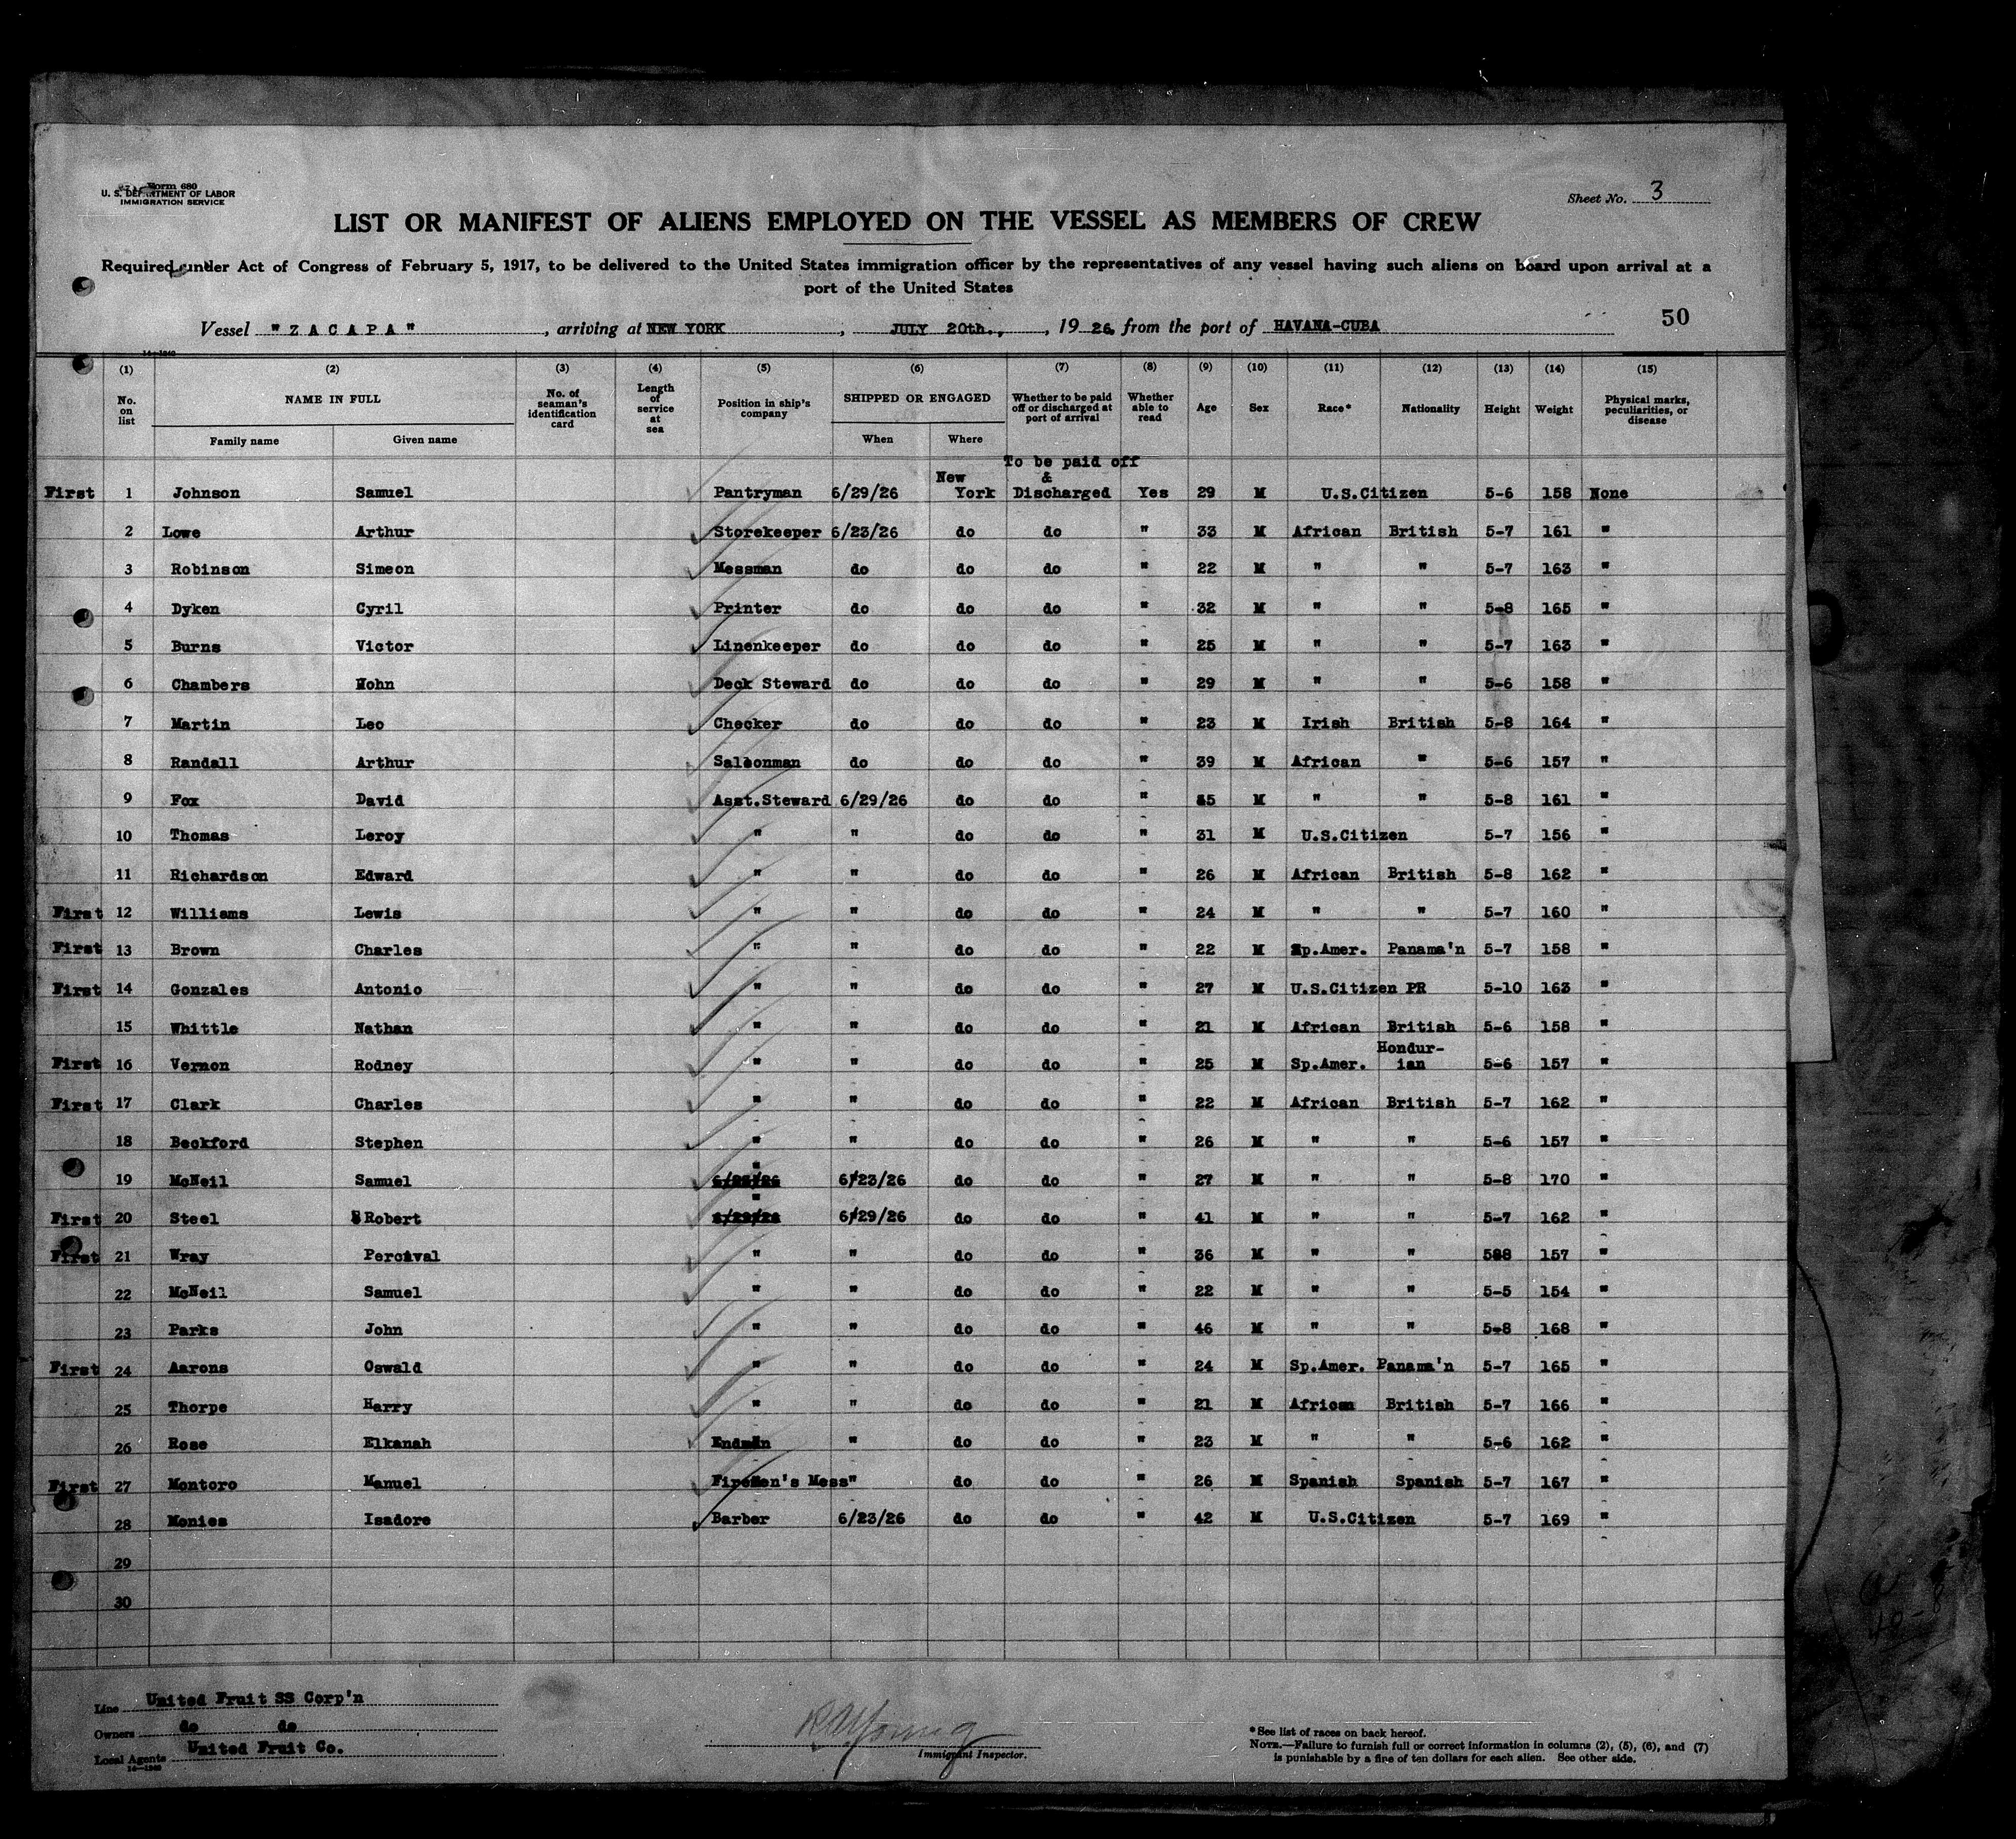 Form 680
U. S. DEPARTMENT OF LABOR
IMMIGRATION SERVICE
Sheet No. 3
LIST OR MANIFEST OF ALIENS EMPLOYED ON THE VESSEL AS MEMBERS OF CREW
Required under Act of Congress of February 5, 1917, to be delivered to the United States immigration officer by the representatives of any vessel having such aliens on board upon arrival at a
port of the United States
Vessel "ZACAPA", arriving at NEW YORK, JULY 20th., 1926, from the port of HAVANA-CUBA
50
14—1240
(1) (2) (3) (4) (5) (6) (7) (8) (9) (10) (11) (12) (13) (14) (15)
No. on list NAME IN FULL No. of seaman's identification card Length of service at sea Position in ship's company SHIPPED OR ENGAGED Whether to be paid off or discharged at port of arrival Whether able to read Age Sex Race* Nationality Height Weight Physical marks, peculiarities, or disease
Family name Given name When Where
First 1 Johnson Samuel Pantryman 6/29/26 New York To be paid off & Discharged Yes 29 M U.S.Citizen 5-6 158 None
2 Lowe Arthur Storekeeper 6/23/26 do do " 33 M African British 5-7 161 "
3 Robinson Simeon Messman do do do " 22 M " " 5-7 163 "
4 Dyken Cyril Printer do do do " 32 M " " 5-8 165 "
5 Burns Victor Linenkeeper do do do " 25 M " " 5-7 163 "
6 Chambers Nohn Deck Steward do do do " 29 M " " 5-6 158 "
7 Martin Leo Checker do do do " 23 M Irish British 5-8 164 "
8 Randall Arthur Saloonman do do do " 39 M African " 5-6 157 "
9 Fox David Asst.Steward 6/29/26 do do " M " " 5-8 161 "
10 Thomas Leroy " " do do " 31 M U.S.Citizen 5-7 156 "
11 Richardson Edward " " do do " 26 M African British 5-8 162 "
First 12 Williams Lewis " " do do " 24 M " " 5-7 160 "
First 13 Brown Charles " " do do " 22 M Sp.Amer. Panama'n 5-7 158 "
First 14 Gonzales Antonio " " do do " 27 M U.S.Citizen PR 5-10 163 "
15 Whittle Nathan " " do do " 21 M African British 5-6 158 "
First 16 Vernon Rodney " " do do " 25 M Sp.Amer. Hondur-ian 5-6 157 "
First 17 Clark Charles " " do do " 22 M African British 5-7 162 "
18 Beckford Stephen " " do do " 26 M " " 5-6 157 "
19 McNeil Samuel " 6/23/26 do do " 27 M " " 5-8 170 "
First 20 Steel Robert " 6/29/26 do do " 41 M " " 5-7 162 "
First 21 Wray Percival " " do do " 36 M " " 588 157 "
22 McNeil Samuel " " do do " 22 M " " 5-5 154 "
23 Parks John " " do do " 46 M " " 5-8 168 "
First 24 Aarons Oswald " " do do " 24 M Sp.Amer. Panama'n 5-7 165 "
25 Thorpe Harry " " do do " 21 M African British 5-7 166 "
26 Rose Elkanah Endman " do do " 23 M " " 5-6 162 "
First 27 Montoro Manuel Firemen's Mess " do do " 26 M Spanish Spanish 5-7 167 "
28 Monies Isadore Barber 6/23/26 do do " 42 M U.S.Citizen 5-7 169 "
29
30
Line United Fruit SS Corp'n
Owners do do
Local Agents United Fruit Co.
14—1240
RAYoung
Immigrant Inspector.
*See list of races on back hereof.
NOTE.—Failure to furnish full or correct information in columns (2), (5), (6), and (7)
is punishable by a fine of ten dollars for each alien. See other side.